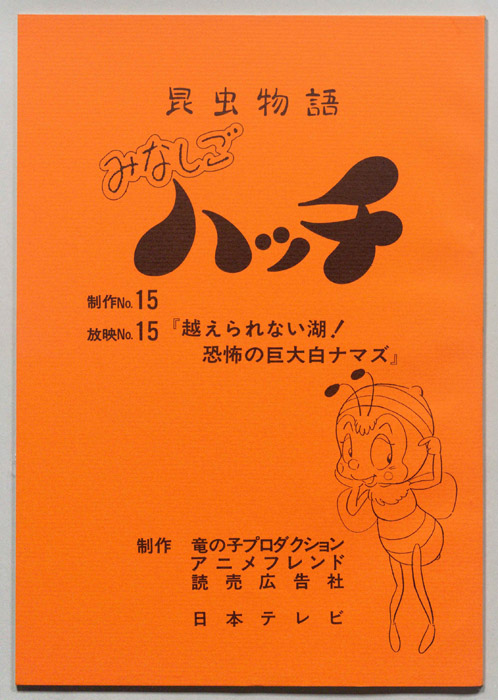 昆虫物語
みなしご
ハッチ
制作No.15
放映No.15『越えられない湖!
恐怖の巨大白ナマズ』
制作 竜の子プロダクション
アニメフレンド
読売広告社
日本テレビ